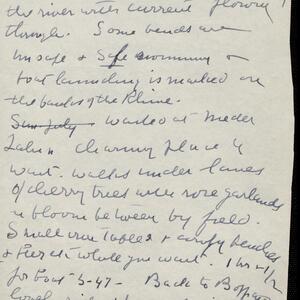 the river with current flowing
through. Some bends are
unsafe & safe swimming &
boat launching is marked on
the banks of the Rhine.
Sun July waited at Nieder
Lahn charming place to
wait. walks under lanes
of cherry trees with rose garlands
in bloom between by field.
Small iron tables & comfy benches
& Beer etc while you wait. 1 hr - 1/2
for boat 5-47 - Back to Boppard